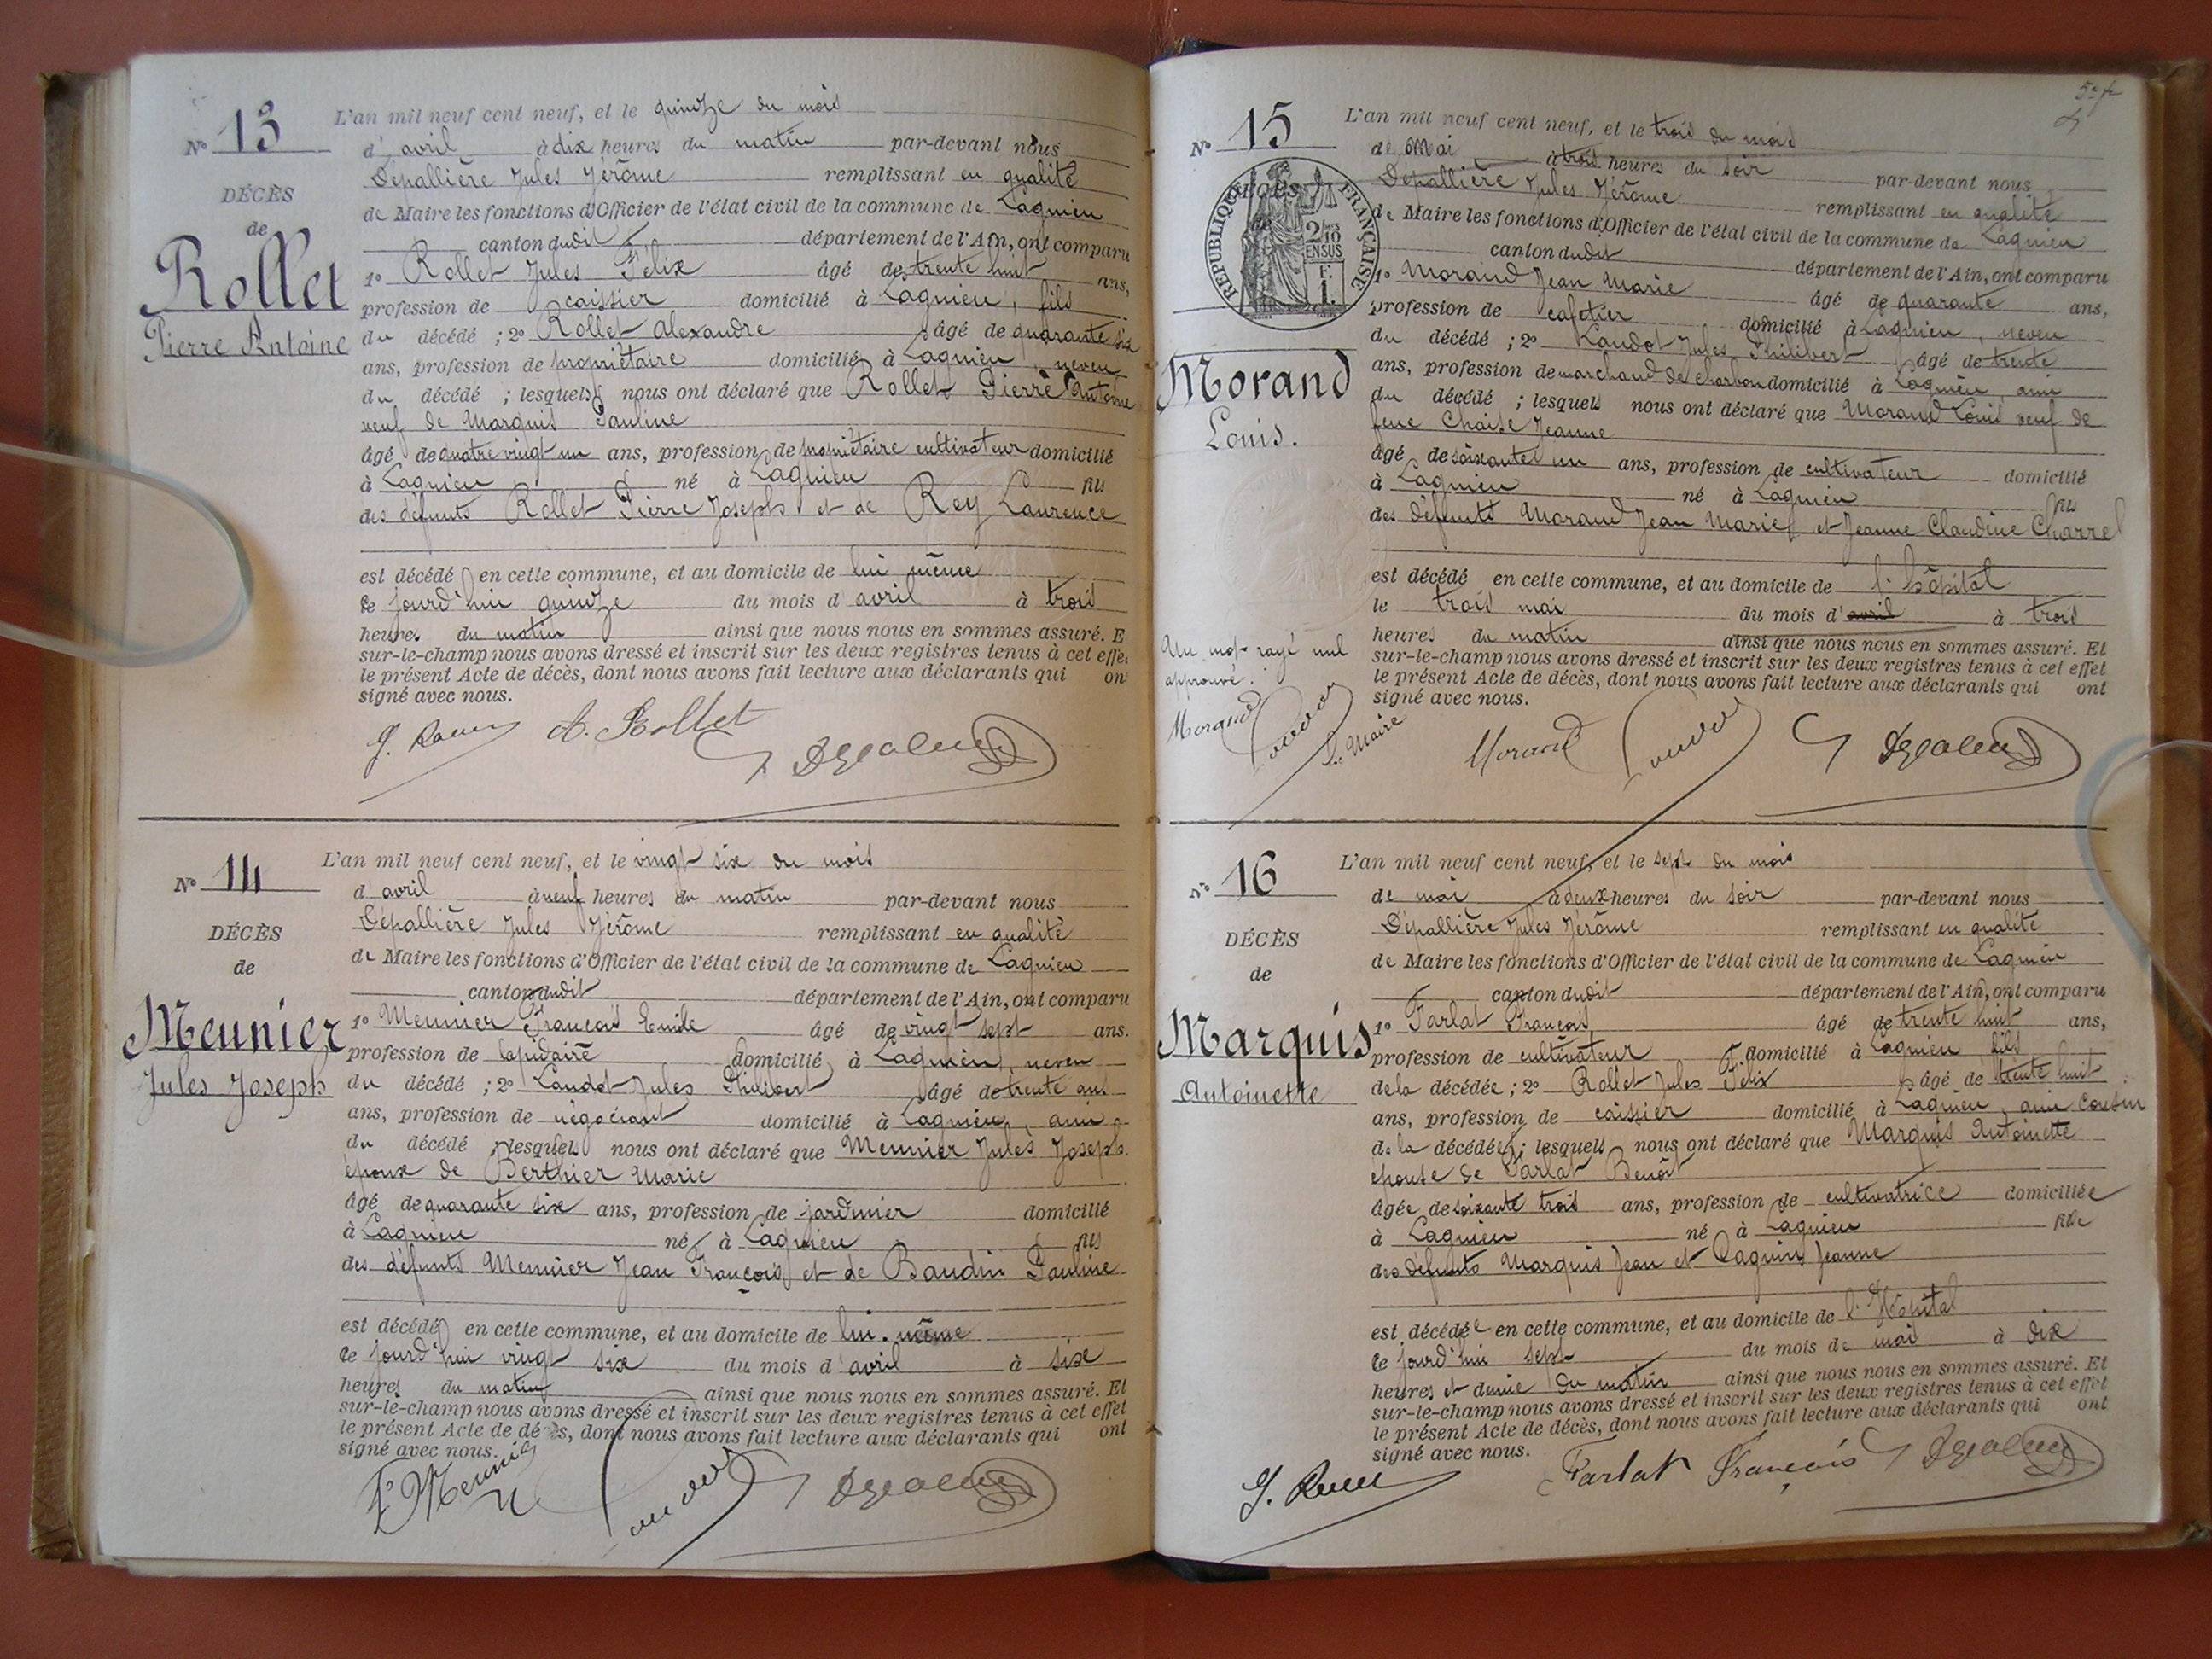 No 13
DÉCÈS
de
Rollet
Pierre Antoine
L'an mil neuf cent neuf, et le quinze du mois
d'avril à dix heures du matin par-devant nous
Dépallière Jules Jérôme remplissant en qualité
de Maire les fonctions d'Officier de l'état civil de la commune de Lagnieu
canton dudit département de l'Ain, ont comparu
1o Rollet Jules Felix âgé de trente huit ans,
profession de caissier domicilié à Lagnieu, fils
du décédé ; 2o Rollet Alexandre âgé de quarante six
ans, profession de propriétaire domicilié à Lagnieu, neveu
du décédé ; lesquels nous ont déclaré que Rollet Pierre Antoine
veuf de Marquis Pauline
âgé de quatre vingt un ans, profession de propriétaire cultivateur domicilié
à Lagnieu né à Lagnieu fils
des défunts Rollet Pierre Joseph et de Rey Laurence
est décédé en cette commune, et au domicile de lui même
ce jourd'hui quinze du mois d'avril à trois
heures du matin ainsi que nous nous en sommes assuré. E
sur-le-champ nous avons dressé et inscrit sur les deux registres tenus à cet effe
le présent Acte de décès, dont nous avons fait lecture aux déclarants qui on
signé avec nous.
A. Rollet
No 14
DÉCÈS
de
Meunier
Jules Joseph
L'an mil neuf cent neuf, et le vingt six du mois
d'avril à neuf heures du matin par-devant nous
Dépallière Jules Jérôme remplissant en qualité
de Maire les fonctions d'Officier de l'état civil de la commune de Lagnieu
canton dudit département de l'Ain, ont comparu
1o Meunier François Emile âgé de vingt sept ans.
profession de lapidaire domicilié à Lagnieu, neveu
du décédé ; 2o Laudot Jules Philibert âgé de trente ans
ans, profession de négociant domicilié à Lagnieu, ami
du décédé ; lesquels nous ont déclaré que Meunier Jules Joseph
époux de Berthier Marie
âgé de quarante six ans, profession de jardinier domicilié
à Lagnieu né à Lagnieu fils
des défunts Meunier Jean François et de Baudin Pauline
est décédé en cette commune, et au domicile de lui-même
ce jourd'hui vingt six du mois d'avril à six
heures du matin ainsi que nous nous en sommes assuré. Et
sur-le-champ nous avons dressé et inscrit sur les deux registres tenus à cet effet
le présent Acte de décès, dont nous avons fait lecture aux déclarants qui ont
signé avec nous.
No 15
RÉPUBLIQUE FRANÇAISE
2/10 EN SUS
DÉCÈS
de
Morand
Louis.
L'an mil neuf cent neuf, et le trois du mois
de Mai à trois heures du soir par-devant nous
Dépallière Jules Jérôme remplissant en qualité
de Maire les fonctions d'Officier de l'état civil de la commune de Lagnieu
canton dudit département de l'Ain, ont comparu
1o Morand Jean Marie âgé de quarante ans,
profession de cafetier domicilié à Lagnieu, neveu
du décédé ; 2o Laudot Jules Philibert âgé de trente
ans, profession de marchand de charbon domicilié à Lagnieu, ami
du décédé ; lesquels nous ont déclaré que Morand Louis veuf de
feue Chaise Jeanne
âgé de soixante un ans, profession de cultivateur domicilié
à Lagnieu né à Lagnieu fils
des défunts Morand Jean Marie et Jeanne Claudine Charrel
est décédé en cette commune, et au domicile de l'hôpital
le trois mai du mois d'avril à trois
heures du matin ainsi que nous nous en sommes assuré. Et
sur-le-champ nous avons dressé et inscrit sur les deux registres tenus à cet effet
le présent Acte de décès, dont nous avons fait lecture aux déclarants qui ont
signé avec nous.
Un mot rayé nul
approuvé.
Morand
Le Maire
Morand
No 16
DÉCÈS
de
Marquis
Antoinette
L'an mil neuf cent neuf, et le sept du mois
de mai à deux heures du soir par-devant nous
Dépallière Jules Jérôme remplissant en qualité
de Maire les fonctions d'Officier de l'état civil de la commune de Lagnieu
canton dudit département de l'Ain, ont comparu
1o Farlat François âgé de trente huit ans,
profession de cultivateur domicilié à Lagnieu fils
de la décédée ; 2o Rollet Jules Felix âgé de trente huit
ans, profession de caissier domicilié à Lagnieu, ami cousin
de la décédée ; lesquels nous ont déclaré que Marquis Antoinette
épouse de Farlat Benoît
âgée de soixante trois ans, profession de cultivatrice domiciliée
à Lagnieu né à Lagnieu fille
des défunts Marquis Jean et Jeanne
est décédée en cette commune, et au domicile de l'Hôpital
ce jourd'hui sept du mois de mai à dix
heures et demie du matin ainsi que nous nous en sommes assuré. Et
sur-le-champ nous avons dressé et inscrit sur les deux registres tenus à cet effet
le présent Acte de décès, dont nous avons fait lecture aux déclarants qui ont
signé avec nous.
Farlat François